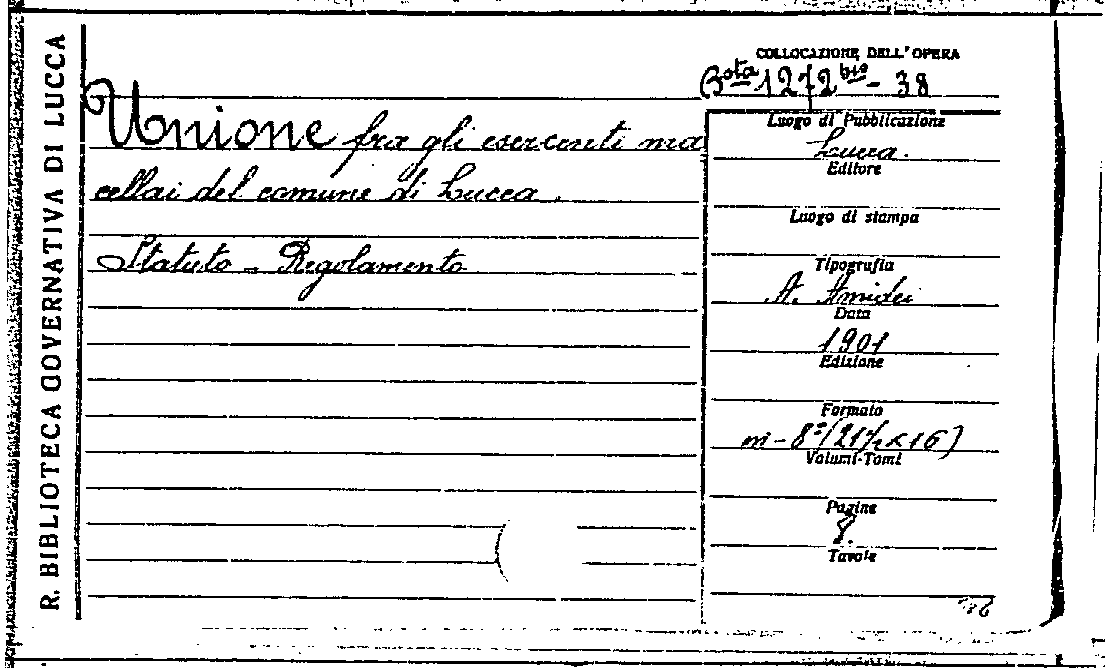 R. BIBLIOTECA GOVERNATIVA DI LUCCA
COLLOCAZIONE DELL'OPERA
Bsta 1272 bis - 38
Unione fra gli esercenti ma
cellai del comune di Lucca.
Statuto - Regolamento
Luogo di Pubblicazione
Lucca.
Editore
Luogo di stampa
Tipografia
A. Amidei
Data
1901
Edizione
Formato
in - 8° (21½ x 16)
Volumi-Tomi
Pagine
8.
Tavole